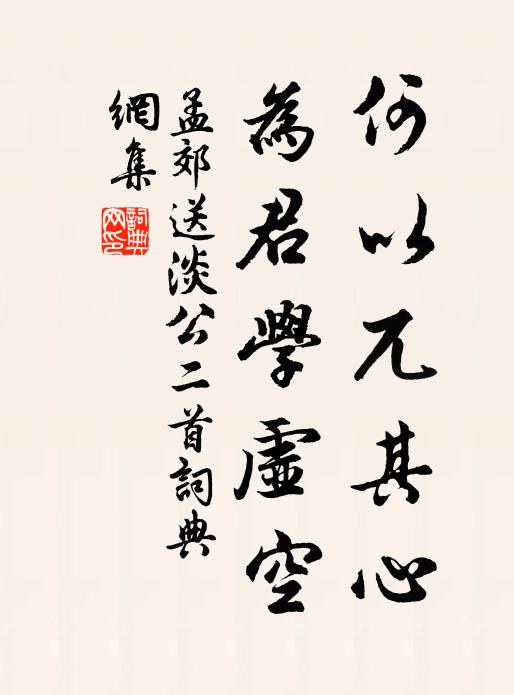 何以兀其心
為君學虛空
孟郊送淡公二首詞典
網集
詞典網印